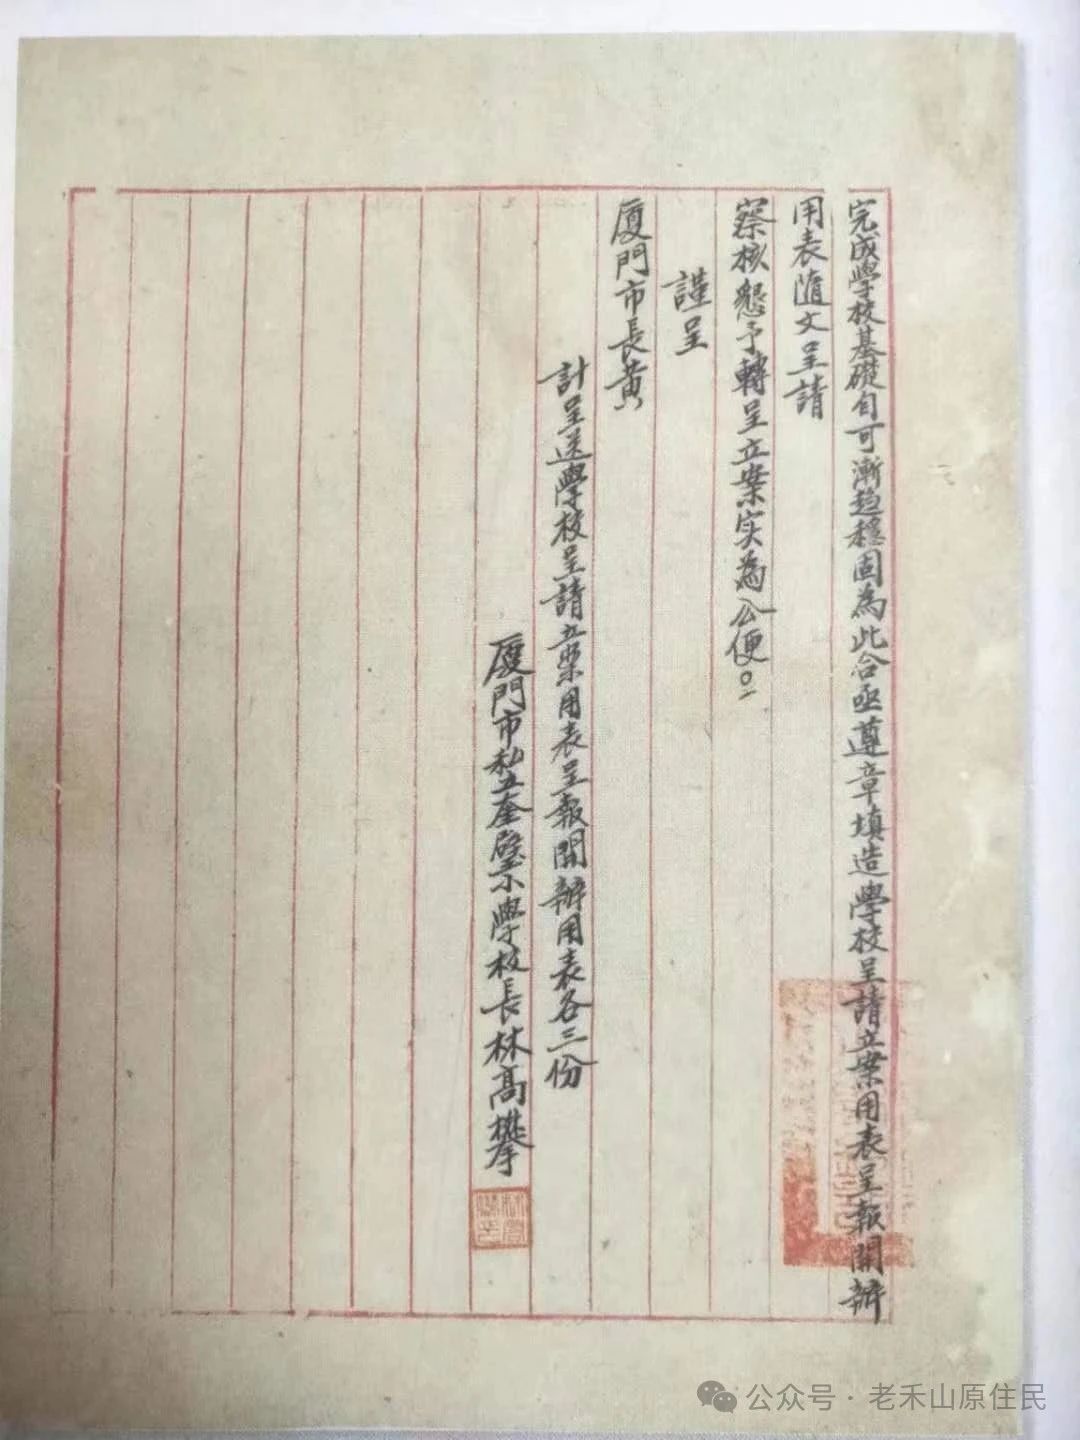 完成學校基礎自可漸趋穩固為此合亟遵章填造學校呈請立案用表呈報開辦
用表隨文呈請
察核懇予轉呈立案实為公便。
謹呈
厦門市長黄
計呈送學校呈請立案用表呈報開辦用表各三份
厦門市私立奎壁小學校長林高攀
公众号·老禾山原住民